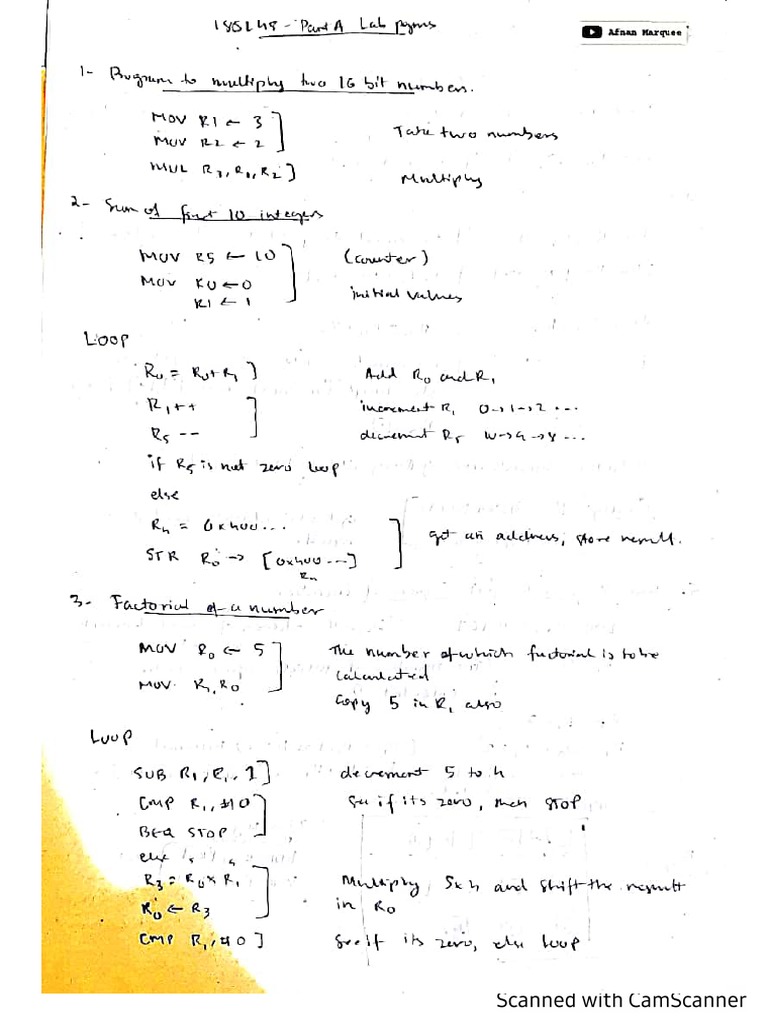 18CSL48 - Part A Lab pgms
Afnan Marquee
1- Program to multiply two 16 bit numbers.
MOV R1 ← 3
MOV R2 ← 2
Take two numbers
MUL R3, R1, R2
Multiply
2- Sum of first 10 integers
MOV R5 ← 10
(counter)
MOV R0 ← 0
R1 ← 1
initial values
LOOP
R0 = R0 + R1
Add R0 and R1
R1++
increment R1 0→1→2 ...
R5 --
decrement R5 10→9→8 ...
if R5 is not zero loop
else
R4 = 0x400...
STR R0 → [0x400...]
R4
got an address, store result.
3- Factorial of a number
MOV R0 ← 5
The number of which factorial is to be
calculated
MOV R1, R0
Copy 5 in R1 also
LOOP
SUB R1, R1, 1
decrement 5 to 4
CMP R1, #0
See if its zero, then STOP
BEQ STOP
else
R3 = R0 x R1
Multiply 5x4 and shift the result
R0 ← R3
in R0
CMP R1, #0
See if its zero, else loop
Scanned with CamScanner